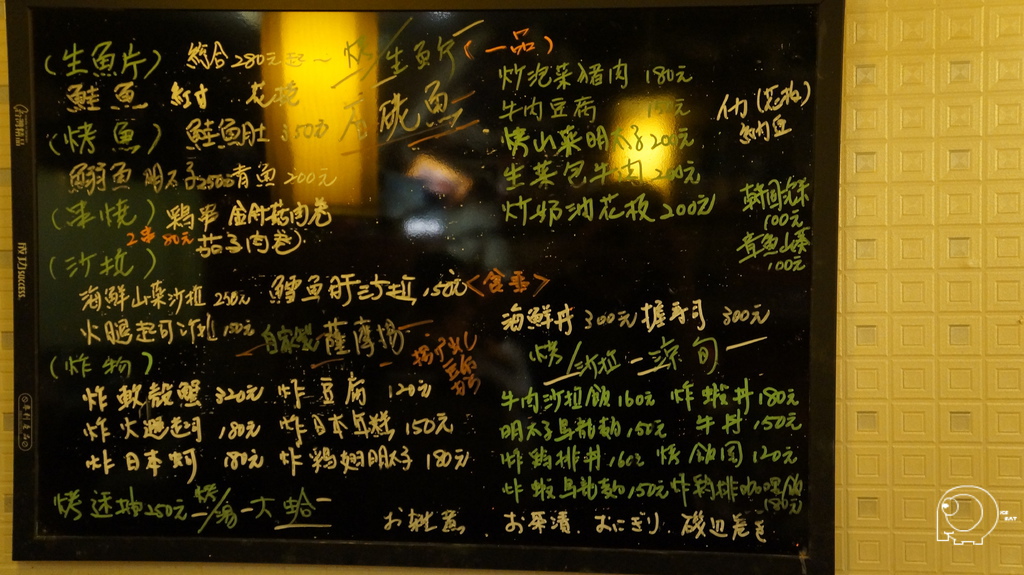 (生魚片) 綜合280元起~
生魚片
鮭魚 紅甘 花枝
(烤魚) 鮭魚肚 350元
石硓魚
鯛魚 明太子250元 青魚 200元
(串燒) 鶏串 金針菇肉卷
2串80元 茄子肉卷
(沙拉)
海鮮山菜沙拉 250元 鱈魚肝沙拉 150元
火腿起司沙拉 150元
自家製 薩摩揚
(炸物)
炸軟殼蟹 320元 炸豆腐 120元
炸火腿起司 180元 炸日本年糕 150元
炸日本蚵 180元 炸鶏翅明太子 180元
烤 250元 烤/湯 大蛤
(一品)
炒泡菜豬肉 180元
牛肉豆腐 150元
烤山菜明太子 200元
生菜包牛肉 200元
炒奶油花枝 200元
(花枝)
納豆
100元
章魚山葵
100元
<食事>
海鮮丼 300元 握寿司 300元
烤/沙拉
牛肉沙拉飯 160元 炸蝦丼 180元
明太子烏龍麵 150元 牛丼 150元
炸鶏排丼 160元 烤飯團 120元
炸蝦烏龍麵 150元 炸鶏排咖哩飯
180元
お茶漬 おにぎり 磯辺卷き
台灣精品
success
ICE
RAY